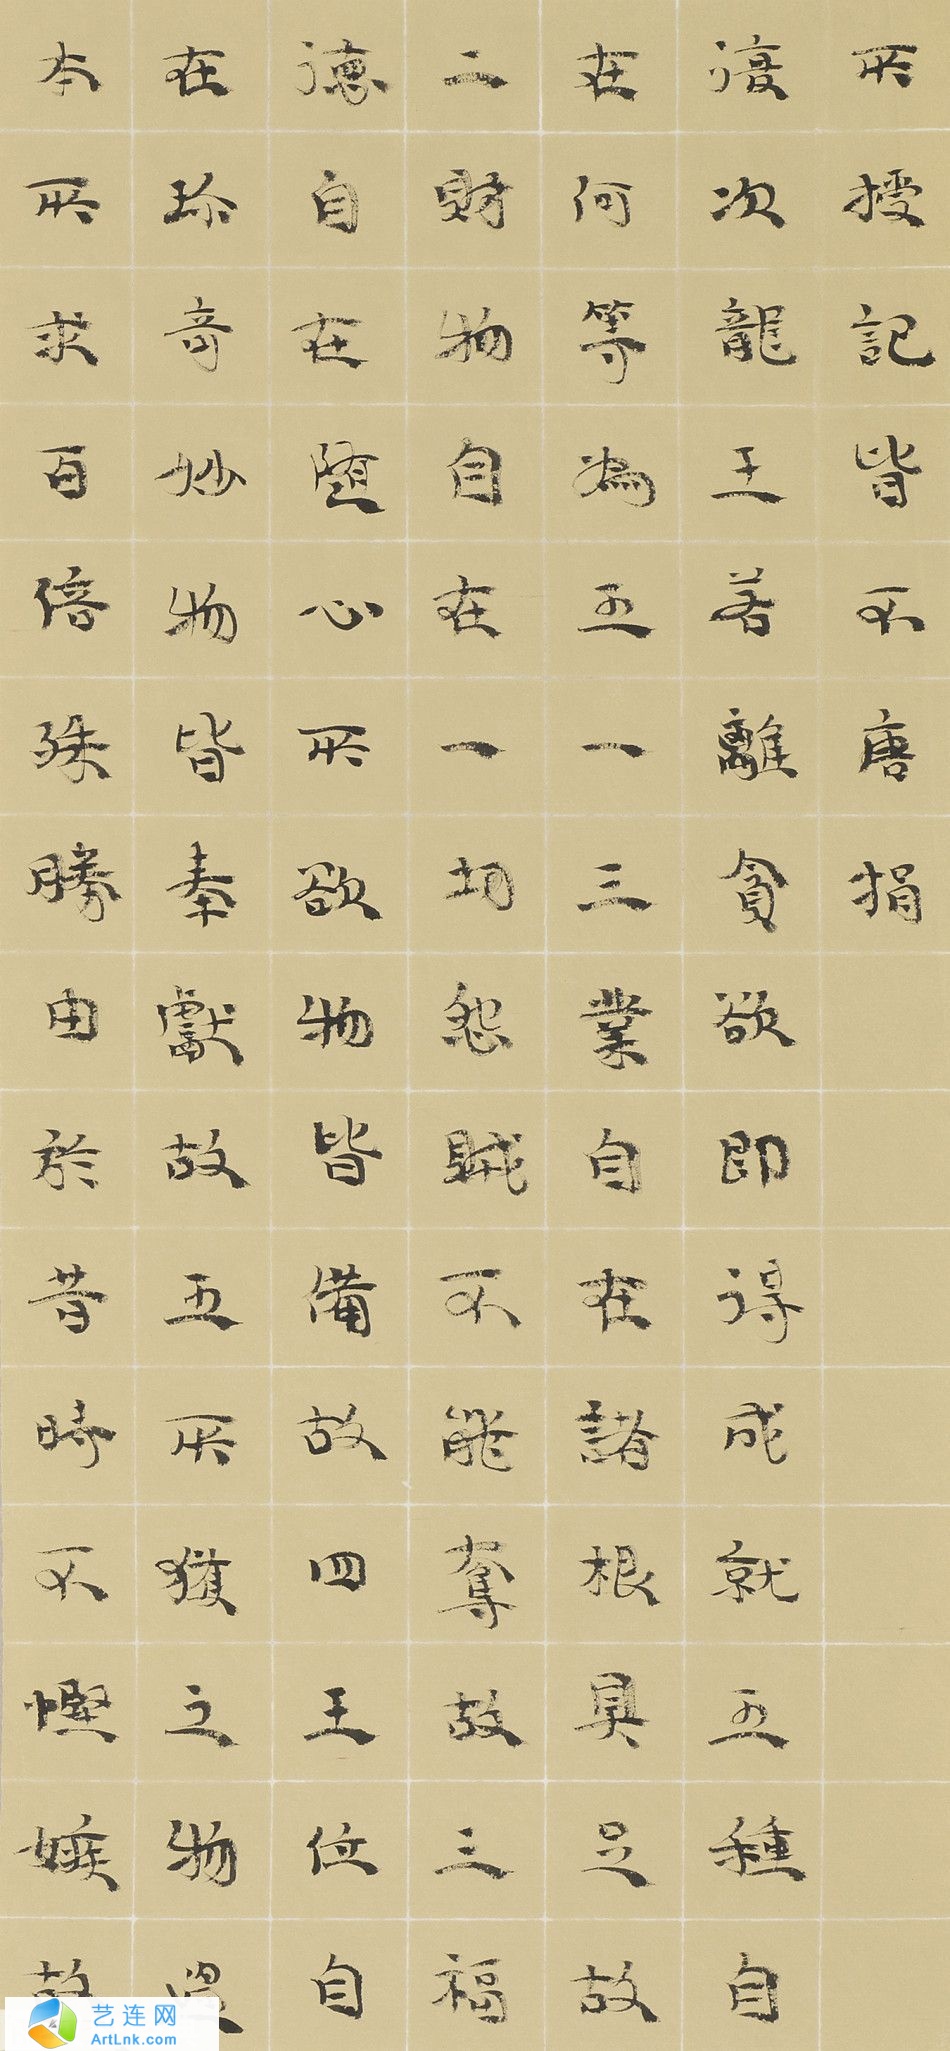 所授記皆不唐捐
復次龍王若離貪欲即得成就五種自
在何等為五一三業自在諸根具足故
二財物自在一切怨賊不能奪故三福
德自在隨心所欲物皆備故四王位自
在珍奇妙物皆奉獻故五所獲之物過
本所求百倍殊勝由於昔時不慳嫉故
艺连网
ArtLnk.com